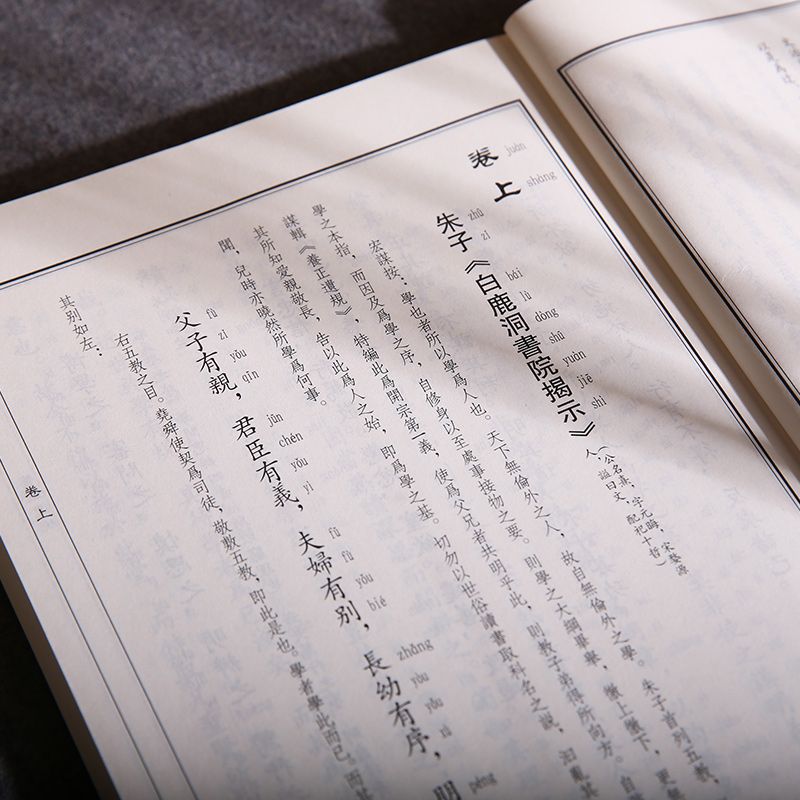 juàn shàng
卷上
zhū zǐ bái lù dòng shū yuàn jiē shì
朱子《白鹿洞書院揭示》
（公名熹，字元晦，宋婺源
人，謚曰文，配祀十哲）
宏謀按：學也者所以學爲人也。天下無倫外之人，故自無倫外之學。朱子首列五教，
學之本指，而因及爲學之序，自修身以至處事接物之要。則學之大綱畢舉，徹上徹下，更
謀輯《養正遺規》，特編此爲開宗第一義，使爲父兄者共明乎此，則教子弟得所向方。自
其所知愛親敬長，告以此爲人之始，即爲學之基。切勿以世俗讀書取科名之説，汩亂其
聞，兒時亦曉然所學爲何事。
fù zǐ yǒu qīn jūn chén yǒu yì fū fù yǒu bié zhǎng yòu yǒu xù péng
父子有親，君臣有義，夫婦有別，長幼有序，朋
右五教之目。堯舜使契爲司徒，敬敷五教，即此是也。學者學此而已。而其
其別如左：
卷上